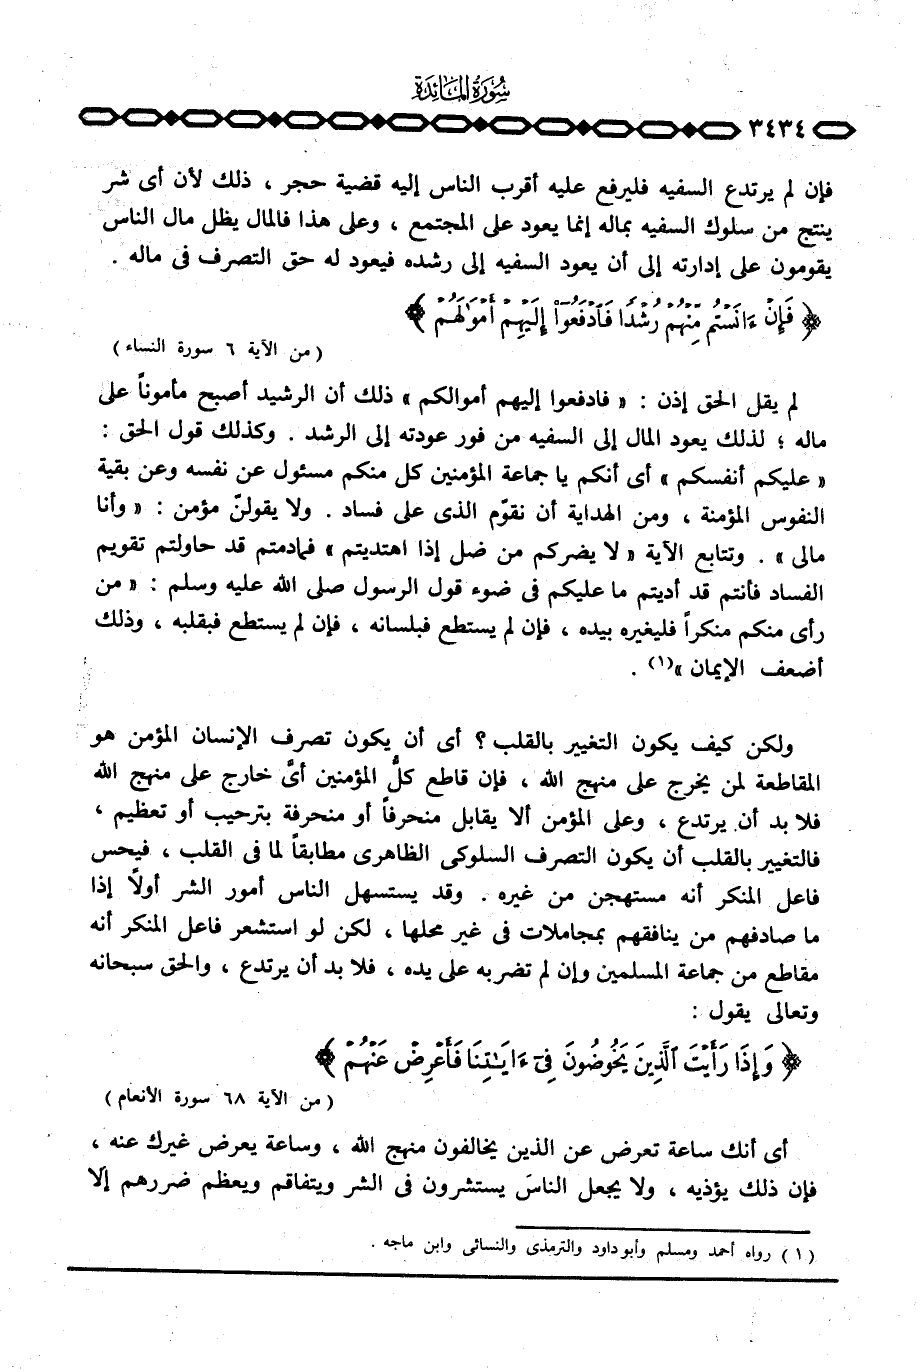 سورة المائدة
٣٤٣٤
فإن لم يرتدع السفيه فليرفع عليه أقرب الناس إليه قضية حجر ، ذلك لأن أى شر
ينتج من سلوك السفيه بماله إنما يعود على المجتمع ، وعلى هذا فالمال يظل مال الناس
يقومون على إدارته إلى أن يعود السفيه إلى رشده فيعود له حق التصرف فى ماله .
﴿ فَإِنْ ءَانَسْتُم مِّنْهُمْ رُشْدًا فَٱدْفَعُوٓا۟ إِلَيْهِمْ أَمْوَٰلَهُمْ ﴾
( من الآية ٦ سورة النساء )
لم يقل الحق إذن : « فادفعوا إليهم أموالكم » ذلك أن الرشيد أصبح مأموناً على
ماله ؛ لذلك يعود المال إلى السفيه من فور عودته إلى الرشد . وكذلك قول الحق :
« عليكم أنفسكم » أى أنكم يا جماعة المؤمنين كل منكم مسئول عن نفسه وعن بقية
النفوس المؤمنة ، ومن الهداية أن نقوّم الذى على فساد . ولا يقولنّ مؤمن : « وأنا
مالى » . وتتابع الآية « لا يضركم من ضل إذا اهتديتم » فمادمتم قد حاولتم تقويم
الفساد فأنتم قد أديتم ما عليكم فى ضوء قول الرسول صلى الله عليه وسلم : « من
رأى منكم منكراً فليغيره بيده ، فإن لم يستطع فبلسانه ، فإن لم يستطع فبقلبه ، وذلك
أضعف الإيمان »(١) .
ولكن كيف يكون التغيير بالقلب ؟ أى أن يكون تصرف الإنسان المؤمن هو
المقاطعة لمن يخرج على منهج الله ، فإن قاطع كلُّ المؤمنين أىَّ خارج على منهج الله
فلا بد أن يرتدع ، وعلى المؤمن ألا يقابل منحرفاً أو منحرفة بترحيب أو تعظيم ،
فالتغيير بالقلب أن يكون التصرف السلوكى الظاهرى مطابقاً لما فى القلب ، فيحس
فاعل المنكر أنه مستهجن من غيره . وقد يستسهل الناس أمور الشر أولاً إذا
ما صادفهم من ينافقهم بمجاملات فى غير محلها ، لكن لو استشعر فاعل المنكر أنه
مقاطع من جماعة المسلمين وإن لم تضربه على يده ، فلا بد أن يرتدع ، والحق سبحانه
وتعالى يقول :
﴿ وَإِذَا رَأَيْتَ ٱلَّذِينَ يَخُوضُونَ فِىٓ ءَايَٰتِنَا فَأَعْرِضْ عَنْهُمْ ﴾
( من الآية ٦٨ سورة الأنعام )
أى أنك ساعة تعرض عن الذين يخالفون منهج الله ، وساعة يعرض غيرك عنه ،
فإن ذلك يؤذيه ، ولا يجعل الناسَ يستشرون فى الشر ويتفاقم ويعظم ضررهم إلا
( ١ ) رواه أحمد ومسلم وأبو داود والترمذى والنسائى وابن ماجه .